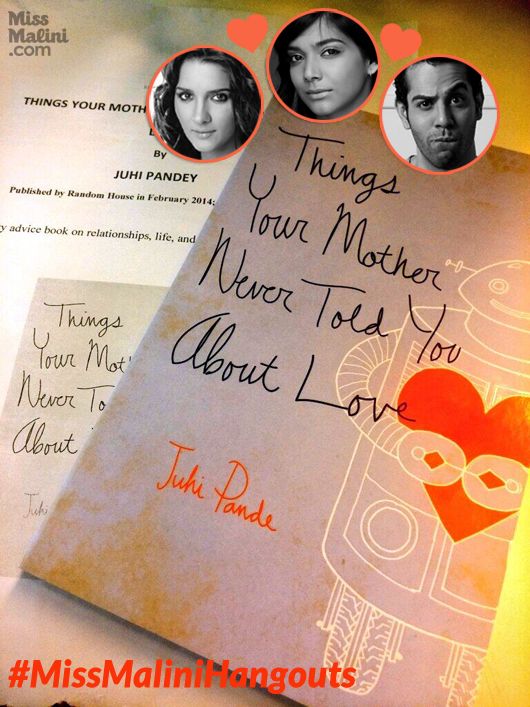 Miss
Malini
.com
THINGS YOUR MOTH
By
JUHI PANDEY
Published by Random House in February 2014;
y advice book on relationships, life, and
Things
Your Mot
Never To
About
Juhi
Things
Your Mother
Never Told You
About Love
Juhi Pande
#MissMaliniHangouts